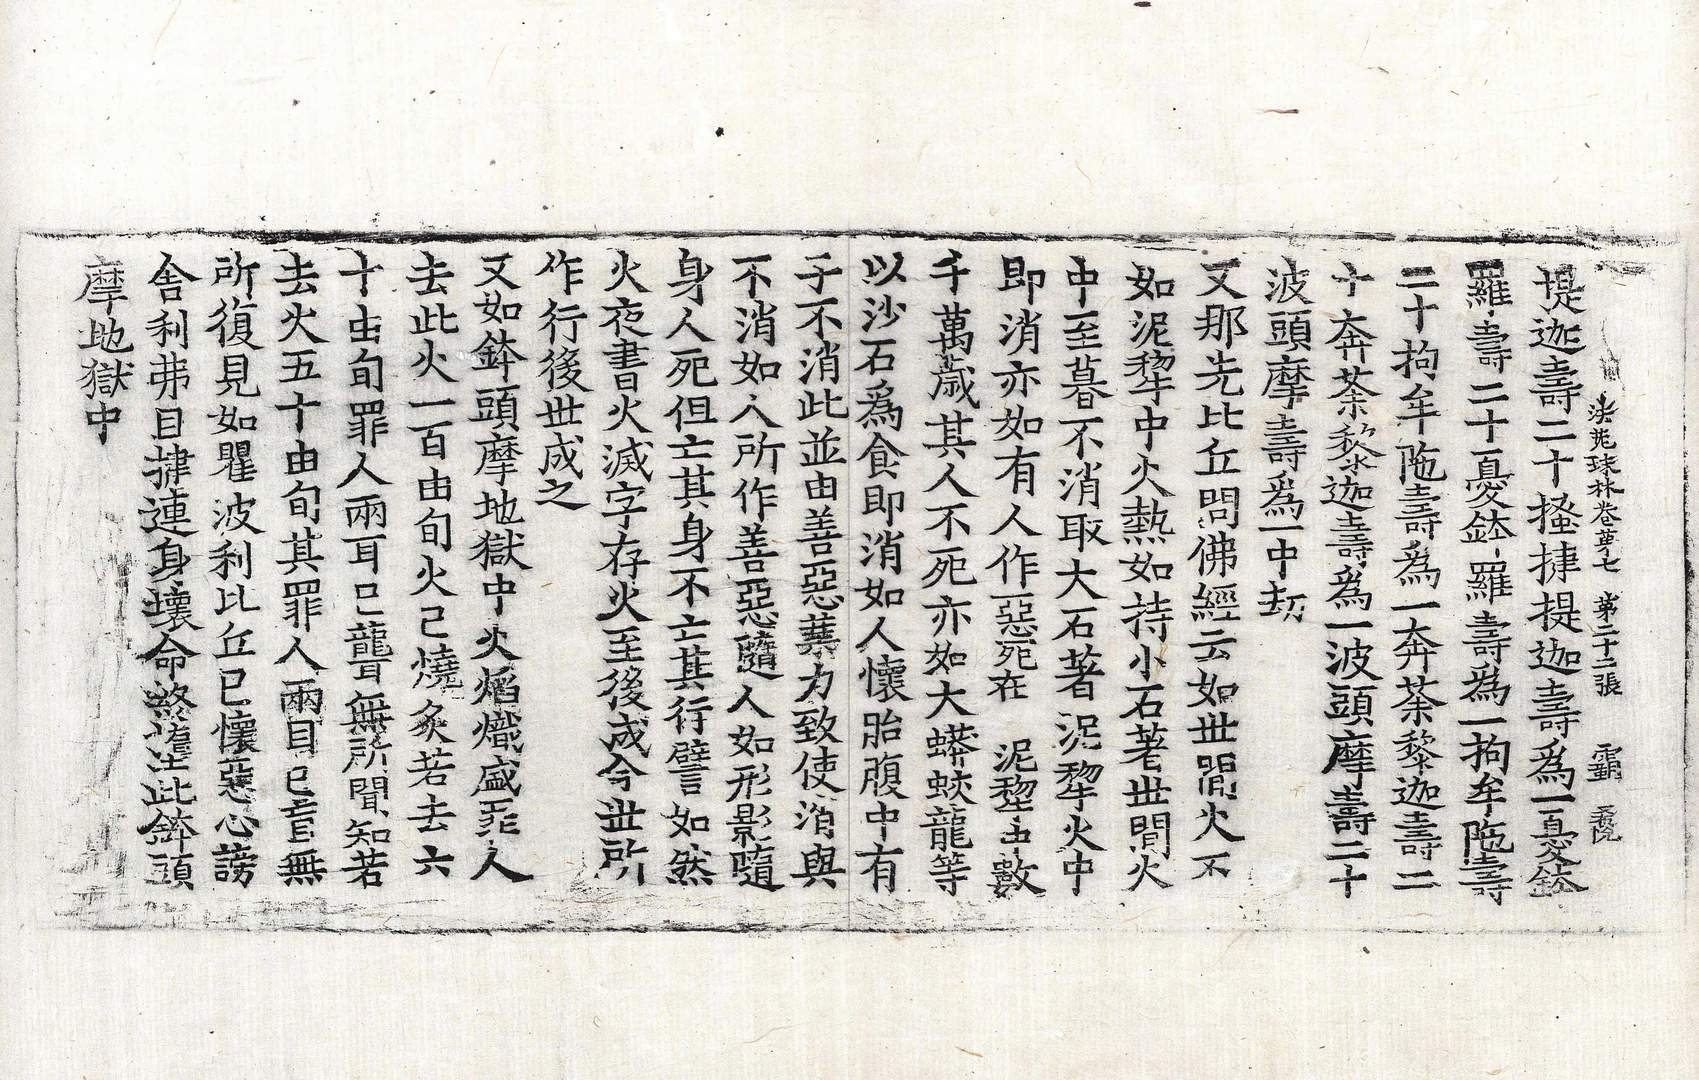 法苑珠林卷第七 第二十二張 覇
堤迦壽二十搔揵提迦壽爲一憂鉢
羅壽二十憂鉢羅壽爲一拘牟陁壽
二十拘牟陁壽爲一奔荼黎迦壽二
十奔荼黎迦壽爲一波頭摩壽二十
波頭摩壽爲一中劫
又那先比丘問佛經云如世間火不
如泥犂中火熱如持小石著世間火
中至暮不消取大石著泥犂火中
即消亦如有人作惡死在泥犂中數
千萬歲其人不死亦如大蟒蛟龍等
以沙石爲食即消如人懷胎腹中有
子不消此並由善惡業力致使消與
不消如人所作善惡隨人如形影隨
身人死但亡其身不亡其行譬如然
火夜書火滅字存火至後成今世所
作行後世成之
又如鉢頭摩地獄中火焰熾盛罪人
去此火一百由旬火已燒炙若去六
十由旬罪人兩耳已聾無所聞知若
去火五十由旬其罪人兩目已盲無
所復見如瞿波利比丘已懷惡心謗
舍利弗目揵連身壞命終墮此鉢頭
摩地獄中